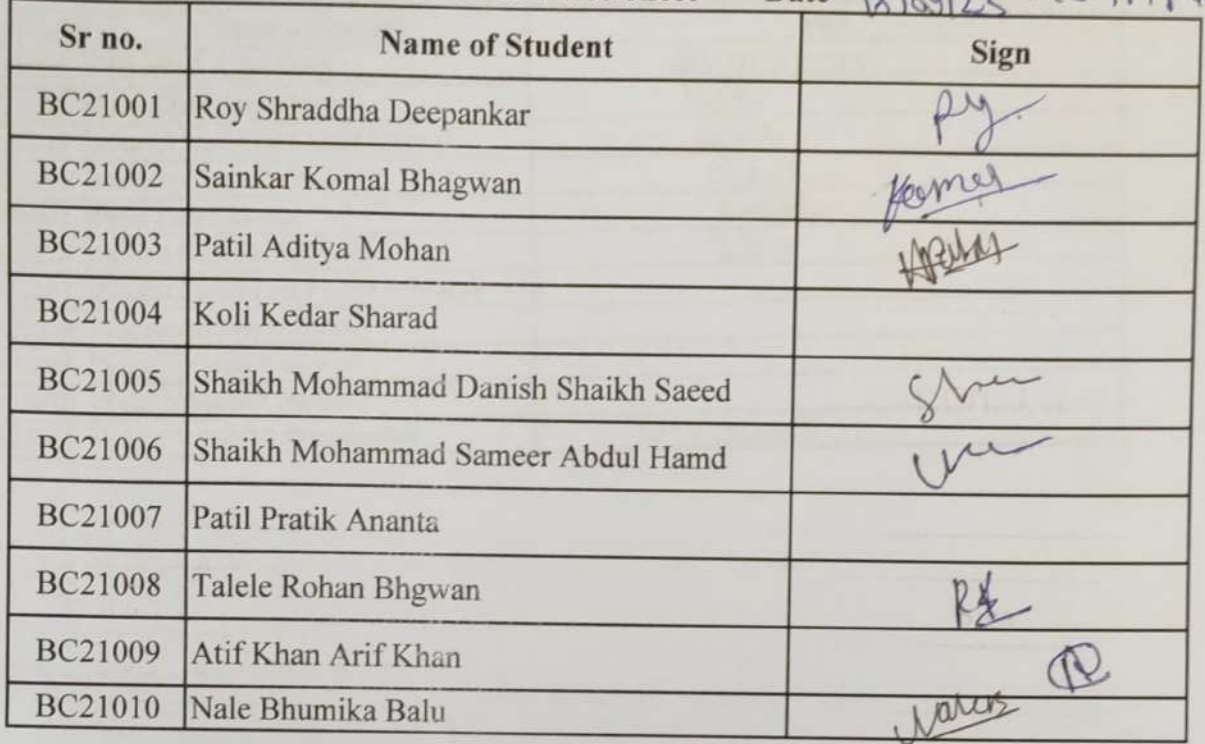 Date
Sr no. Name of Student Sign
BC21001 Roy Shraddha Deepankar
BC21002 Sainkar Komal Bhagwan Komal
BC21003 Patil Aditya Mohan
BC21004 Koli Kedar Sharad
BC21005 Shaikh Mohammad Danish Shaikh Saeed
BC21006 Shaikh Mohammad Sameer Abdul Hamd
BC21007 Patil Pratik Ananta
BC21008 Talele Rohan Bhgwan
BC21009 Atif Khan Arif Khan
BC21010 Nale Bhumika Balu